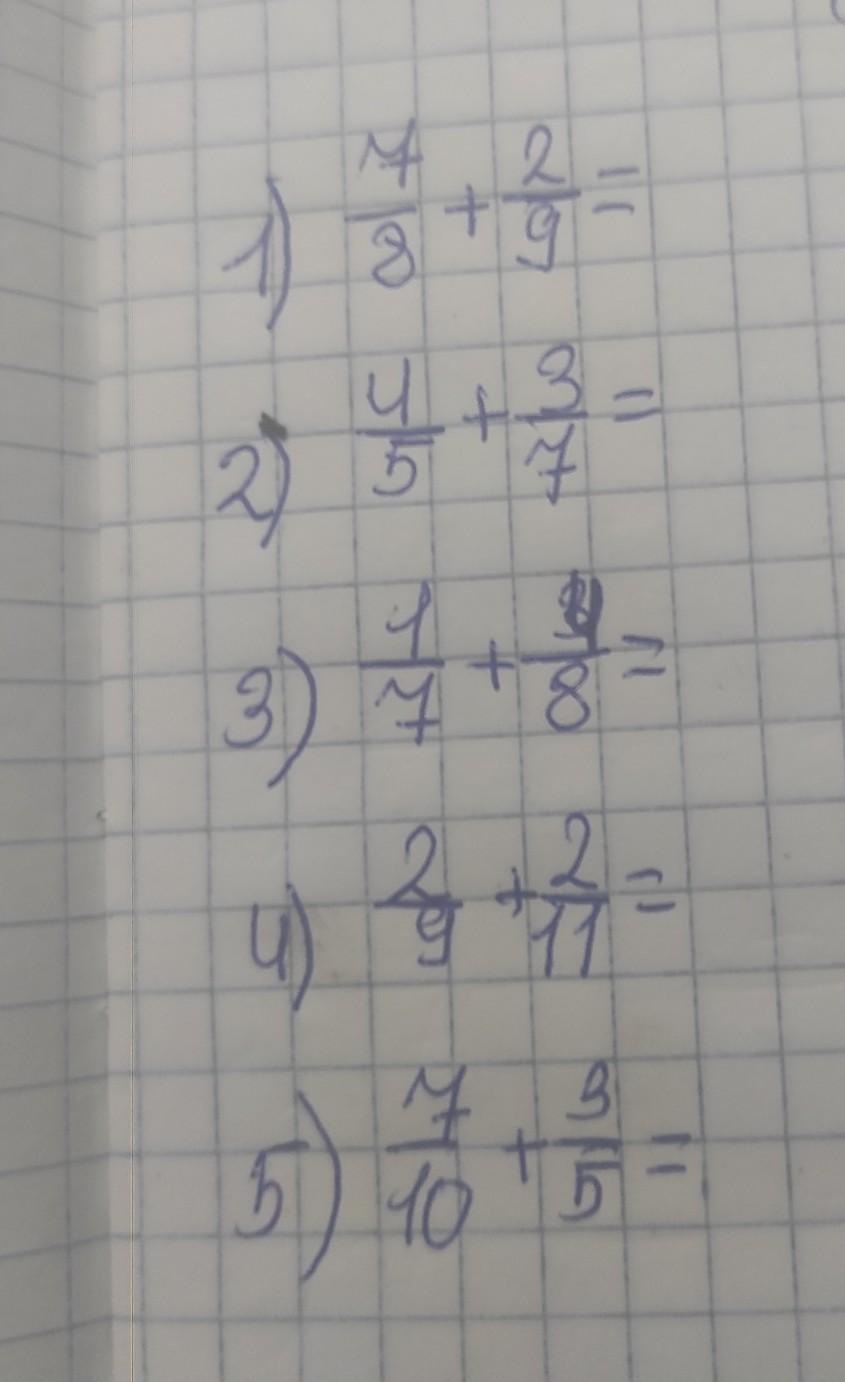 1) 7/8 + 2/9 =
2) 4/5 + 3/7 =
3) 1/7 + 4/8 =
4) 2/9 + 2/11 =
5) 7/10 + 3/5 =